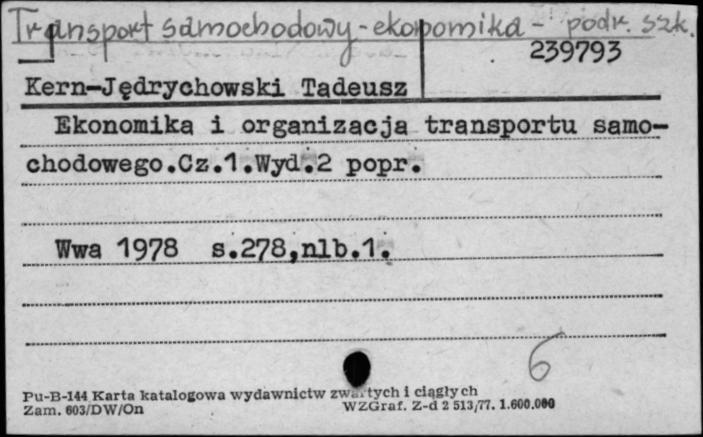 Transport samochodowy - ekonomika - podr. szk.
239793
Kern-Jędrychowski Tadeusz
Ekonomika i organizacja transportu samo-
chodowego.Cz.1.Wyd.2 popr.
Wwa 1978 s.278,nlb.1.
6
Pu-B-144 Karta katalogowa wydawnictw zwartych i ciągłych
Zam. 603/DW/On WZGraf. Z-d 2 513/77. 1.600.000